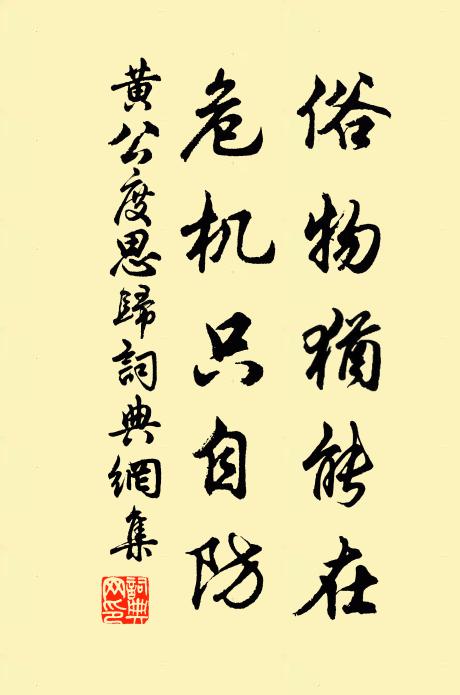 俗物猶能在
危机只自防
黄公度思歸詞典網集
詞典網印